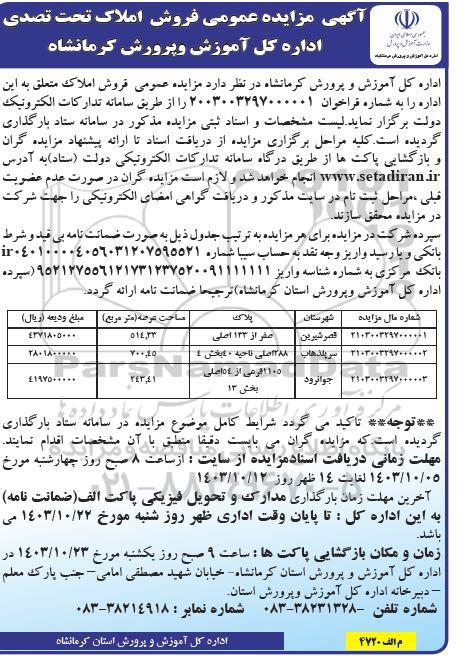 آگهی مزایده عمومی فروش املاک تحت تصدی
اداره کل آموزش وپرورش کرمانشاه
جمهوری اسلامی ایران
وزارت آموزش و پرورش
اداره کل آموزش و پرورش استان کرمانشاه
اداره کل آموزش و پرورش کرمانشاه در نظر دارد مزایده عمومی فروش املاک متعلق به این
اداره را به شماره فراخوان ۲۰۰۳۰۰۳۲۹۷۰۰۰۰۰۱ را از طریق سامانه تدارکات الکترونیک
دولت برگزار نماید.لیست مشخصات و اسناد ثبتی مزایده مذکور در سامانه ستاد بارگذاری
گردیده است.کلیه مراحل برگزاری مزایده از دریافت اسناد تا ارائه پیشنهاد مزایده گران
و بازگشایی پاکت ها از طریق درگاه سامانه تدارکات الکترونیکی دولت (ستاد)به آدرس
www.setadiran.ir انجام خواهد شد و لازم است مزایده گران در صورت عدم عضویت
قبلی ،مراحل ثبت نام در سایت مذکور و دریافت گواهی امضای الکترونیکی را جهت شرکت
در مزایده محقق سازند.
سپرده شرکت در مزایده برای هر مزایده به ترتیب جدول ذیل به صورت ضمانت نامه بی قید و شرط
بانکی و یا رسید واریز وجه نقد به حساب سیبا شماره ir۰۴۰۱۰۰۰۰۴۰۵۶۰۳۱۲۰۷۵۹۵۵۲۱
بانک مرکزی به شماره شناسه واریز ۹۵۲۱۲۷۵۵۶۱۲۱۷۳۱۲۳۷۵۲۰۰۹۱۱۱۱۱۱۱(سپرده
اداره کل آموزش وپرورش استان کرمانشاه)ترجیحا ضمانت نامه ارائه گردد.
شماره مال مزایده شهرستان پلاک مساحت عرصه(متر مربع) مبلغ ودیعه (ریال)
۲۱۰۳۰۰۳۲۹۷۰۰۰۰۰۱ قصرشیرین صفر از ۱۳۳ اصلی ۵۱۴,۳۳ ۴۳۷۱۸۰۵۰۰۰
۲۱۰۳۰۰۳۲۹۷۰۰۰۰۰۲ سرپلذهاب ۲۸۸اصلی ناحیه ۴۰بخش ۴ ۷۰۰,۴۵ ۲۸۰۱۸۰۰۰۰۰
۲۱۰۳۰۰۳۲۹۷۰۰۰۰۰۳ جوانرود ۱۱۰۵فرعی از ۵۴اصلی بخش ۱۳ ۲۴۳,۴۱ ۴۱۹۷۵۰۰۰۰۰
**توجه** تاکید می گردد شرایط کامل موضوع مزایده در سامانه ستاد بارگذاری
گردیده است.که مزایده گران می بایست دقیقا منطبق با آن مشخصات اقدام نمایند.
مهلت زمانی دریافت اسنادمزایده از سایت : ازساعت ۸ صبح روز چهارشنبه مورخ
۱۴۰۳/۱۰/۰۵ لغایت ۱۴ ظهر روز ۱۴۰۳/۱۰/۱۲
آخرین مهلت زمان بارگذاری مدارک و تحویل فیزیکی پاکت الف(ضمانت نامه)
به این اداره کل : تا پایان وقت اداری ظهر روز شنبه مورخ ۱۴۰۳/۱۰/۲۲ می
باشد.
زمان و مکان بازگشایی پاکت ها : ساعت ۹ صبح روز یکشنبه مورخ ۱۴۰۳/۱۰/۲۳ در
اداره کل آموزش و پرورش استان کرمانشاه- خیابان شهید مصطفی امامی– جنب پارک معلم
– دبیرخانه اداره کل آموزش وپرورش استان.
شماره تلفن -۳۸۲۳۱۳۲۸-۰۸۳ شماره نمابر : ۳۸۲۱۴۹۱۸-۰۸۳
م الف ۴۷۲۰
اداره کل آموزش و پرورش استان کرمانشاه